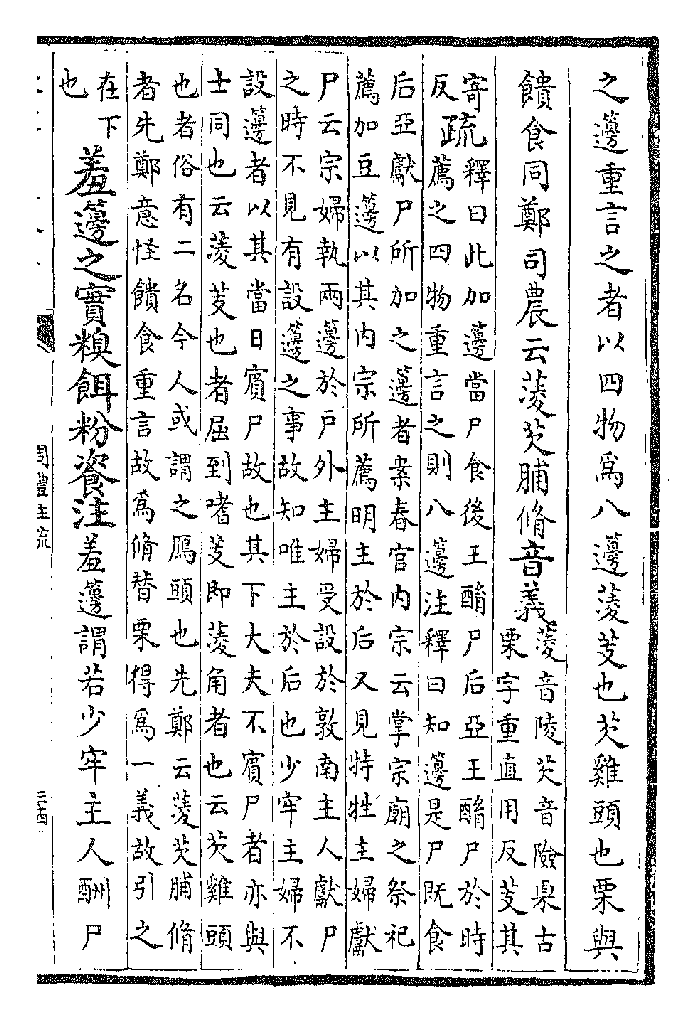 之籩重言之者以四物爲八籩蔆芰也芡雞頭也栗與
饋食同鄭司農云蔆芡脯脩音義蔆音陵芡音險㮚古
栗字重直用反芰其
寄
反疏釋曰此加籩當尸食後王酳尸后亞王酳尸於時
薦之四物重言之則八籩注釋曰知籩是尸既食
后亞獻尸所加之籩者案春官內宗云掌宗廟之祭祀
薦加豆籩以其内宗所薦明主於后又見特牲主婦獻
尸云宗婦執兩籩於戶外主婦受設於敦南主人獻尸
之時不見有設籩之事故知唯主於后也少牢主婦不
設籩者以其當日賓尸故也其下大夫不賓尸者亦與
士同也云蔆芰也者屈到嗜芰即蔆角者也云芡雞頭
也者俗有二名今人或謂之鴈頭也先鄭云蔆芡脯脩
者先鄭意怪饋食重言故爲脩替栗得爲一義故引之
在下
也羞籩之實糗餌粉餈注羞籩謂若少牢主人酬尸
周禮注疏